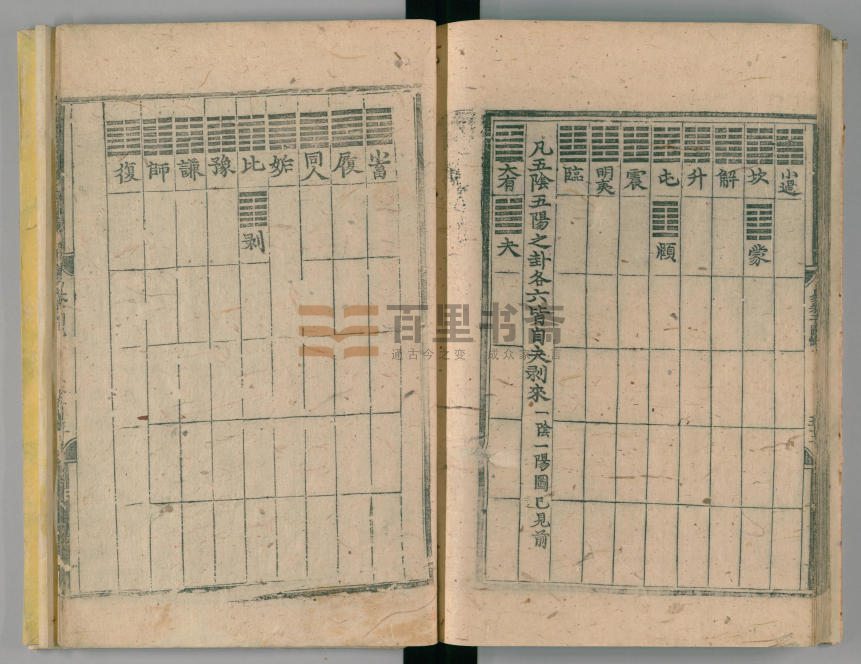 小過
坎
蒙
解
升
屯
頤
震
明夷
臨
凡五陰五陽之卦各六皆自夬剥來一陰一陽圖已見前
大有
夬
小畜
履
同人
姤
比
剥
豫
謙
師
復
百里书斋
通古今之变 成众家
言